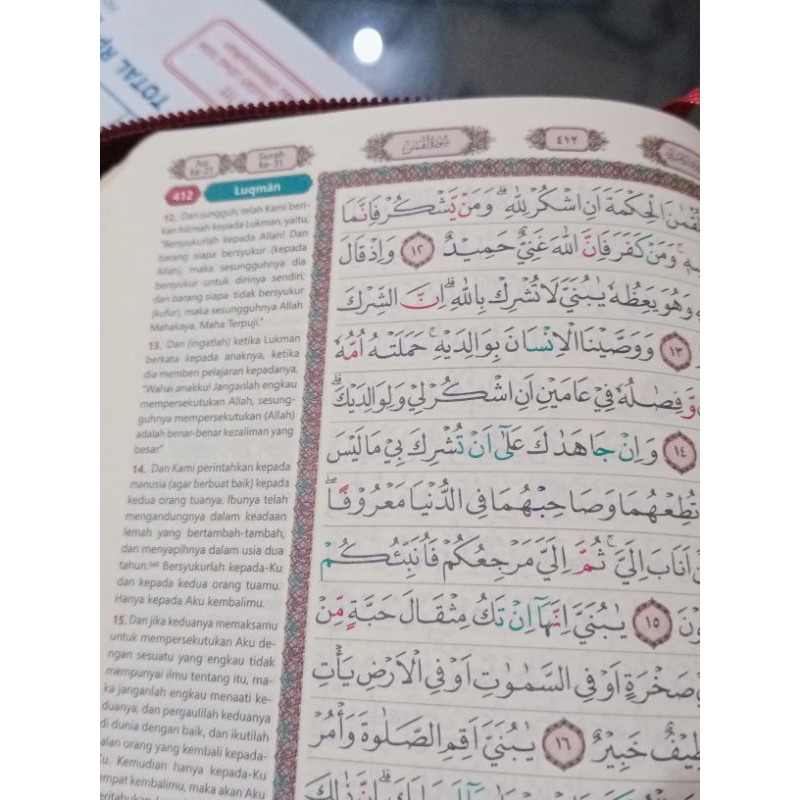 TOTAL Rp
Juz
ke-21
Surah
ke-31
سورة لقمن
٤١٢
412
Luqmān
12. Dan sungguh, telah Kami beri-
kan hikmah kepada Lukman, yaitu,
"Bersyukurlah kepada Allah! Dan
barang siapa bersyukur (kepada
Allah), maka sesungguhnya dia
bersyukur untuk dirinya sendiri;
dan barang siapa tidak bersyukur
(kufur), maka sesungguhnya Allah
Mahakaya, Maha Terpuji."
13. Dan (ingatlah) ketika Lukman
berkata kepada anaknya, ketika
dia memberi pelajaran kepadanya,
"Wahai anakku! Janganlah engkau
mempersekutukan Allah, sesung-
guhnya mempersekutukan (Allah)
adalah benar-benar kezaliman yang
besar."
14. Dan Kami perintahkan kepada
manusia (agar berbuat baik) kepada
kedua orang tuanya. Ibunya telah
mengandungnya dalam keadaan
lemah yang bertambah-tambah,
dan menyapihnya dalam usia dua
tahun. Bersyukurlah kepada-Ku
dan kepada kedua orang tuamu.
Hanya kepada Aku kembalimu.
15. Dan jika keduanya memaksamu
untuk mempersekutukan Aku de-
ngan sesuatu yang engkau tidak
mempunyai ilmu tentang itu, ma-
ka janganlah engkau menaati ke-
duanya, dan pergaulilah keduanya
di dunia dengan baik, dan ikutilah
jalan orang yang kembali kepada-
Ku. Kemudian hanya kepada-Ku
tempat kembalimu, maka akan Aku
الْحِكْمَةَ اَنِ اشْكُرْ لِلّٰهِ ۗوَمَنْ يَّشْكُرْ فَاِنَّمَا
وَمَنْ كَفَرَ فَاِنَّ اللّٰهَ غَنِيٌّ حَمِيْدٌ ١٢ وَاِذْ قَالَ
وَهُوَ يَعِظُهٗ يٰبُنَيَّ لَا تُشْرِكْ بِاللّٰهِ ۗاِنَّ الشِّرْكَ
١٣ وَوَصَّيْنَا الْاِنْسَانَ بِوَالِدَيْهِۚ حَمَلَتْهُ اُمُّهٗ
وَّفِصَالُهٗ فِيْ عَامَيْنِ اَنِ اشْكُرْ لِيْ وَلِوَالِدَيْكَۗ
١٤ وَاِنْ جَاهَدٰكَ عَلٰٓى اَنْ تُشْرِكَ بِيْ مَا لَيْسَ
تُطِعْهُمَا وَصَاحِبْهُمَا فِى الدُّنْيَا مَعْرُوْفًاۖ
اَنَابَ اِلَيَّۚ ثُمَّ اِلَيَّ مَرْجِعُكُمْ فَاُنَبِّئُكُمْ
١٥ يٰبُنَيَّ اِنَّهَآ اِنْ تَكُ مِثْقَالَ حَبَّةٍ مِّنْ
صَخْرَةٍ اَوْ فِى السَّمٰوٰتِ اَوْ فِى الْاَرْضِ يَأْتِ
خَبِيْرٌ ١٦ يٰبُنَيَّ اَقِمِ الصَّلٰوةَ وَأْمُرْ